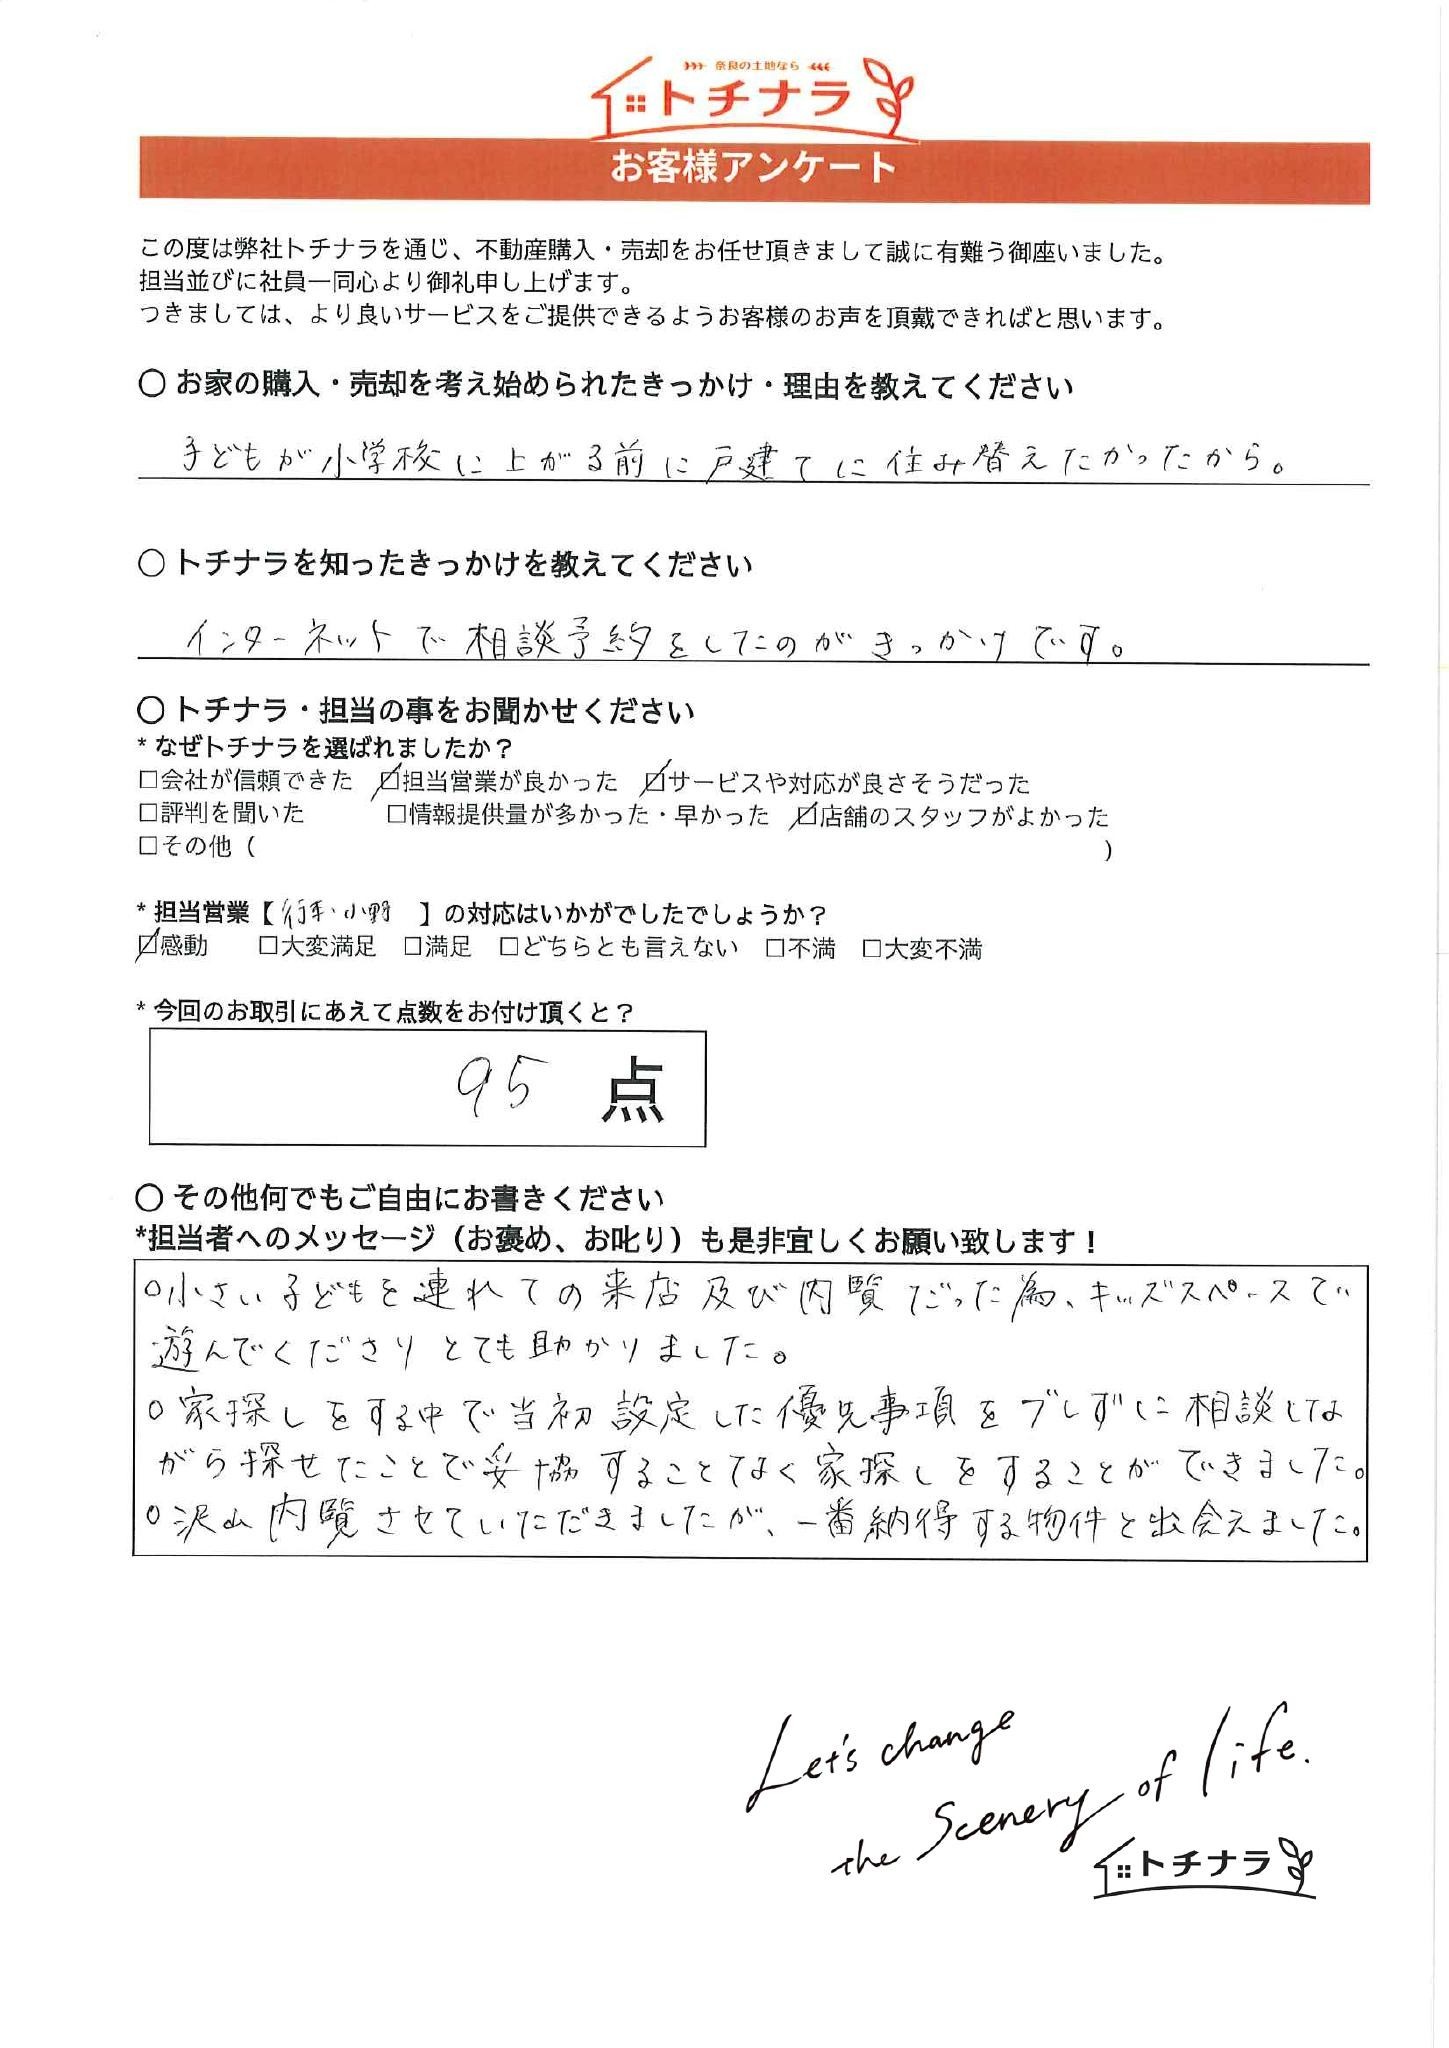 奈良の土地なら
トチナラ
お客様アンケート
この度は弊社トチナラを通じ、不動産購入・売却をお任せ頂きまして誠に有難う御座いました。
担当並びに社員一同心より御礼申し上げます。
つきましては、より良いサービスをご提供できるようお客様のお声を頂戴できればと思います。
〇 お家の購入・売却を考え始められたきっかけ・理由を教えてください
子どもが小学校に上がる前に戸建てに住み替えたかったから。
〇 トチナラを知ったきっかけを教えてください
インターネットで相談予約をしたのがきっかけです。
〇 トチナラ・担当の事をお聞かせください
* なぜトチナラを選ばれましたか？
□会社が信頼できた ☑担当営業が良かった ☑サービスや対応が良さそうだった
□評判を聞いた □情報提供量が多かった・早かった ☑店舗のスタッフがよかった
□その他（ ）
* 担当営業【 小野 】の対応はいかがでしたでしょうか？
☑感動 □大変満足 □満足 □どちらとも言えない □不満 □大変不満
* 今回のお取引にあえて点数をお付け頂くと？
95 点
〇 その他何でもご自由にお書きください
*担当者へのメッセージ（お褒め、お叱り）も是非宜しくお願い致します！
○小さい子どもを連れての来店及び内覧だった為、キッズスペースで
遊んでくださりとても助かりました。
○家探しをする中で当初設定した優先事項をブレずに相談しな
がら探せたことで妥協することなく家探しをすることができました。
○沢山内覧させていただきましたが、一番納得する物件と出会えました。
Let's change
the Scenery of life.
トチナラ